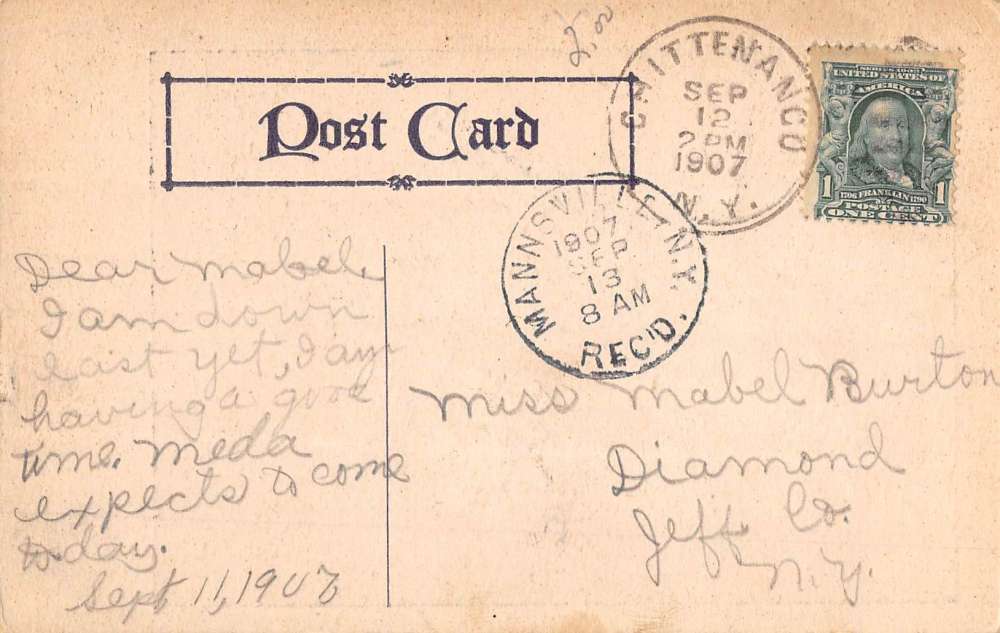 2.00
Post Card
CHITTENANGO
SEP
12
2 PM
1907
N.Y.
SERIES 1902
UNITED STATES OF
AMERICA
1
1
1706 FRANKLIN 1790
POSTAGE
ONE CENT
MANNSVILLE, N.Y.
1907
SEP
13
8 AM
REC'D.
Dear Mabel,
I am down
east yet, I am
having a good
time. Meda
expects to come
to-day.
Sept 11, 1907
Miss Mabel Burton
Diamond
Jeff. Co.
N.Y.